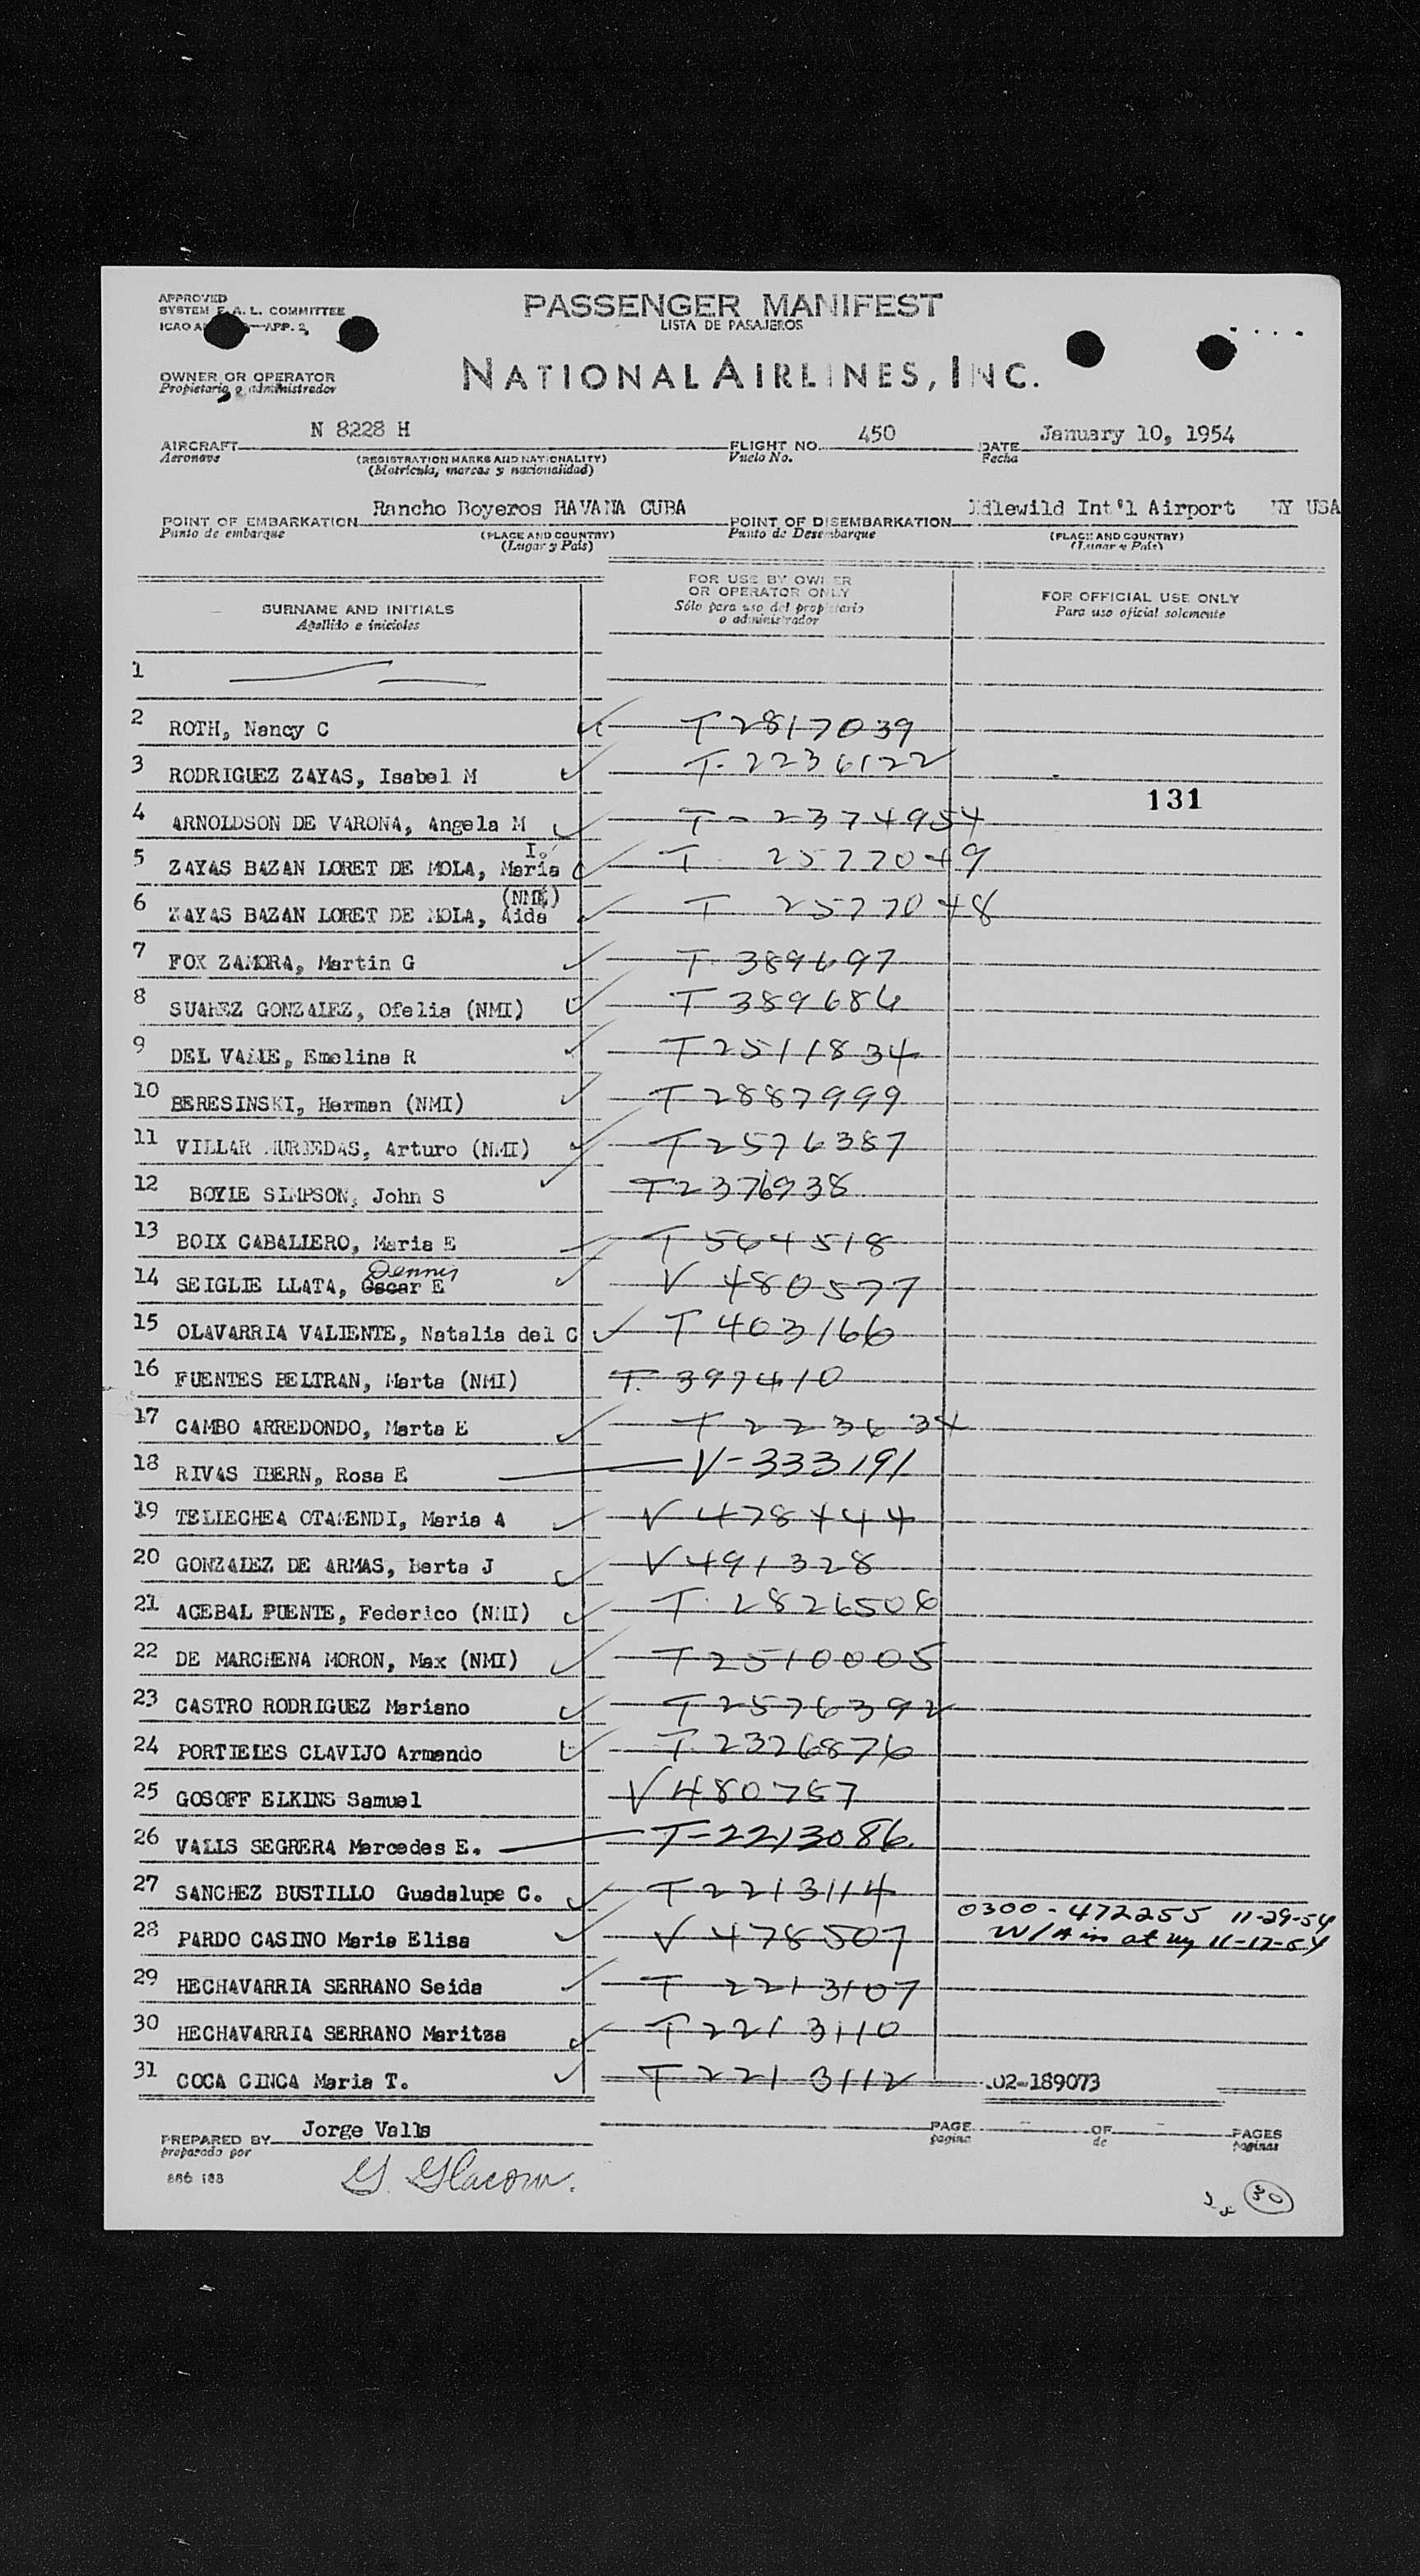 APPROVED
SYSTEM F. A. L. COMMITTEE
ICAO APP. 2
PASSENGER MANIFEST
LISTA DE PASAJEROS
OWNER OR OPERATOR
Propietario o administrador
NATIONAL AIRLINES, INC.
AIRCRAFT N 8228 H FLIGHT NO. 450 DATE January 10, 1954
Aeronave (REGISTRATION MARKS AND NATIONALITY) Vuelo No. Fecha
(Matricula, marcas y nacionalidad)
POINT OF EMBARKATION Rancho Boyeros HAVANA CUBA POINT OF DISEMBARKATION Idlewild Int'l Airport NY USA
Punto de embarque (PLACE AND COUNTRY) Punto de Desembarque (PLACE AND COUNTRY)
(Lugar y Pais) (Lugar y Pais)
SURNAME AND INITIALS FOR USE BY OWNER OR OPERATOR ONLY FOR OFFICIAL USE ONLY
Apellido e iniciales Sólo para uso del propietario o administrador Para uso oficial solamente
1
2 ROTH, Nancy C T 2817039
3 RODRIGUEZ ZAYAS, Isabel M T-2236122
131
4 ARNOLDSON DE VARONA, Angela M T-2374954
5 ZAYAS BAZAN LORET DE MOLA, Maria I. T 2577049
6 ZAYAS BAZAN LORET DE MOLA, Aida (NMI) T 2577048
7 FOX ZAMORA, Martin G T 389697
8 SUAREZ GONZALEZ, Ofelia (NMI) T 389686
9 DEL VALLE, Emelina R T2511834
10 BERESINSKI, Herman (NMI) T 2887999
11 VILLAR MURIEDAS, Arturo (NMI) T2576387
12 BOYLE SIMPSON, John S T2376938
13 BOIX CABALLERO, Maria E T 564518
14 SEIGLIE LLATA, Oscar Dennis E V 480577
15 OLAVARRIA VALIENTE, Natalia del C T 403166
16 FUENTES BELTRAN, Marta (NMI) T. 397410
17 CAMBO ARREDONDO, Marta E T 223634
18 RIVAS IBERN, Rosa E V-333191
19 TELLECHEA OTAMENDI, Maria A V 478444
20 GONZALEZ DE ARMAS, Berta J V 491328
21 ACEBAL PUENTE, Federico (NMI) T. 2826506
22 DE MARCHENA MORON, Max (NMI) T2510005
23 CASTRO RODRIGUEZ Mariano T2576392
24 PORTIELES CLAVIJO Armando T 2326876
25 GOSOFF ELKINS Samuel V 480757
26 VALLS SEGRERA Mercedes E. T-2213086
27 SANCHEZ BUSTILLO Guadalupe C. T2213114
0300-472255 11-29-54
28 PARDO CASINO Maria Elisa V 478507 W/A in at ny 11-17-54
29 HECHAVARRIA SERRANO Seida T 2213107
30 HECHAVARRIA SERRANO Maritza T2213110
31 COCA CINCA Maria T. T 2213112 .02-189073
PREPARED BY Jorge Valls PAGE OF PAGES
preparado por pagina de paginas
886 183
30